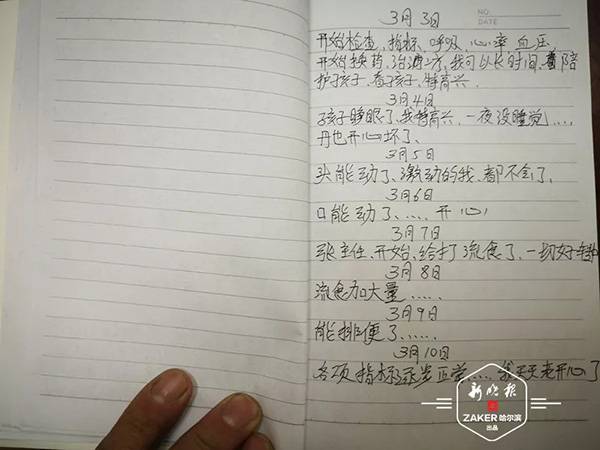 3月3日
NO.
DATE
开始检查、指标、呼吸、心率、血压、
开始换药、治满方、我可以长时间、陪
护孩子、看孩子、特高兴、
3月4日
孩子睁眼了、我特高兴、一夜没睡觉……
丹也开心坏了、
3月5日
头能动了、激动的我、都不会了、
3月6日
口能动了、…… 开心
3月7日
张主任、开始、给打流食了、一切好转
3月8日
流食加大量……
3月9日
能排便了……
3月10日
各项指标逐步正常……我天天老开心了
新晚报
ZAKER 哈尔滨
出品